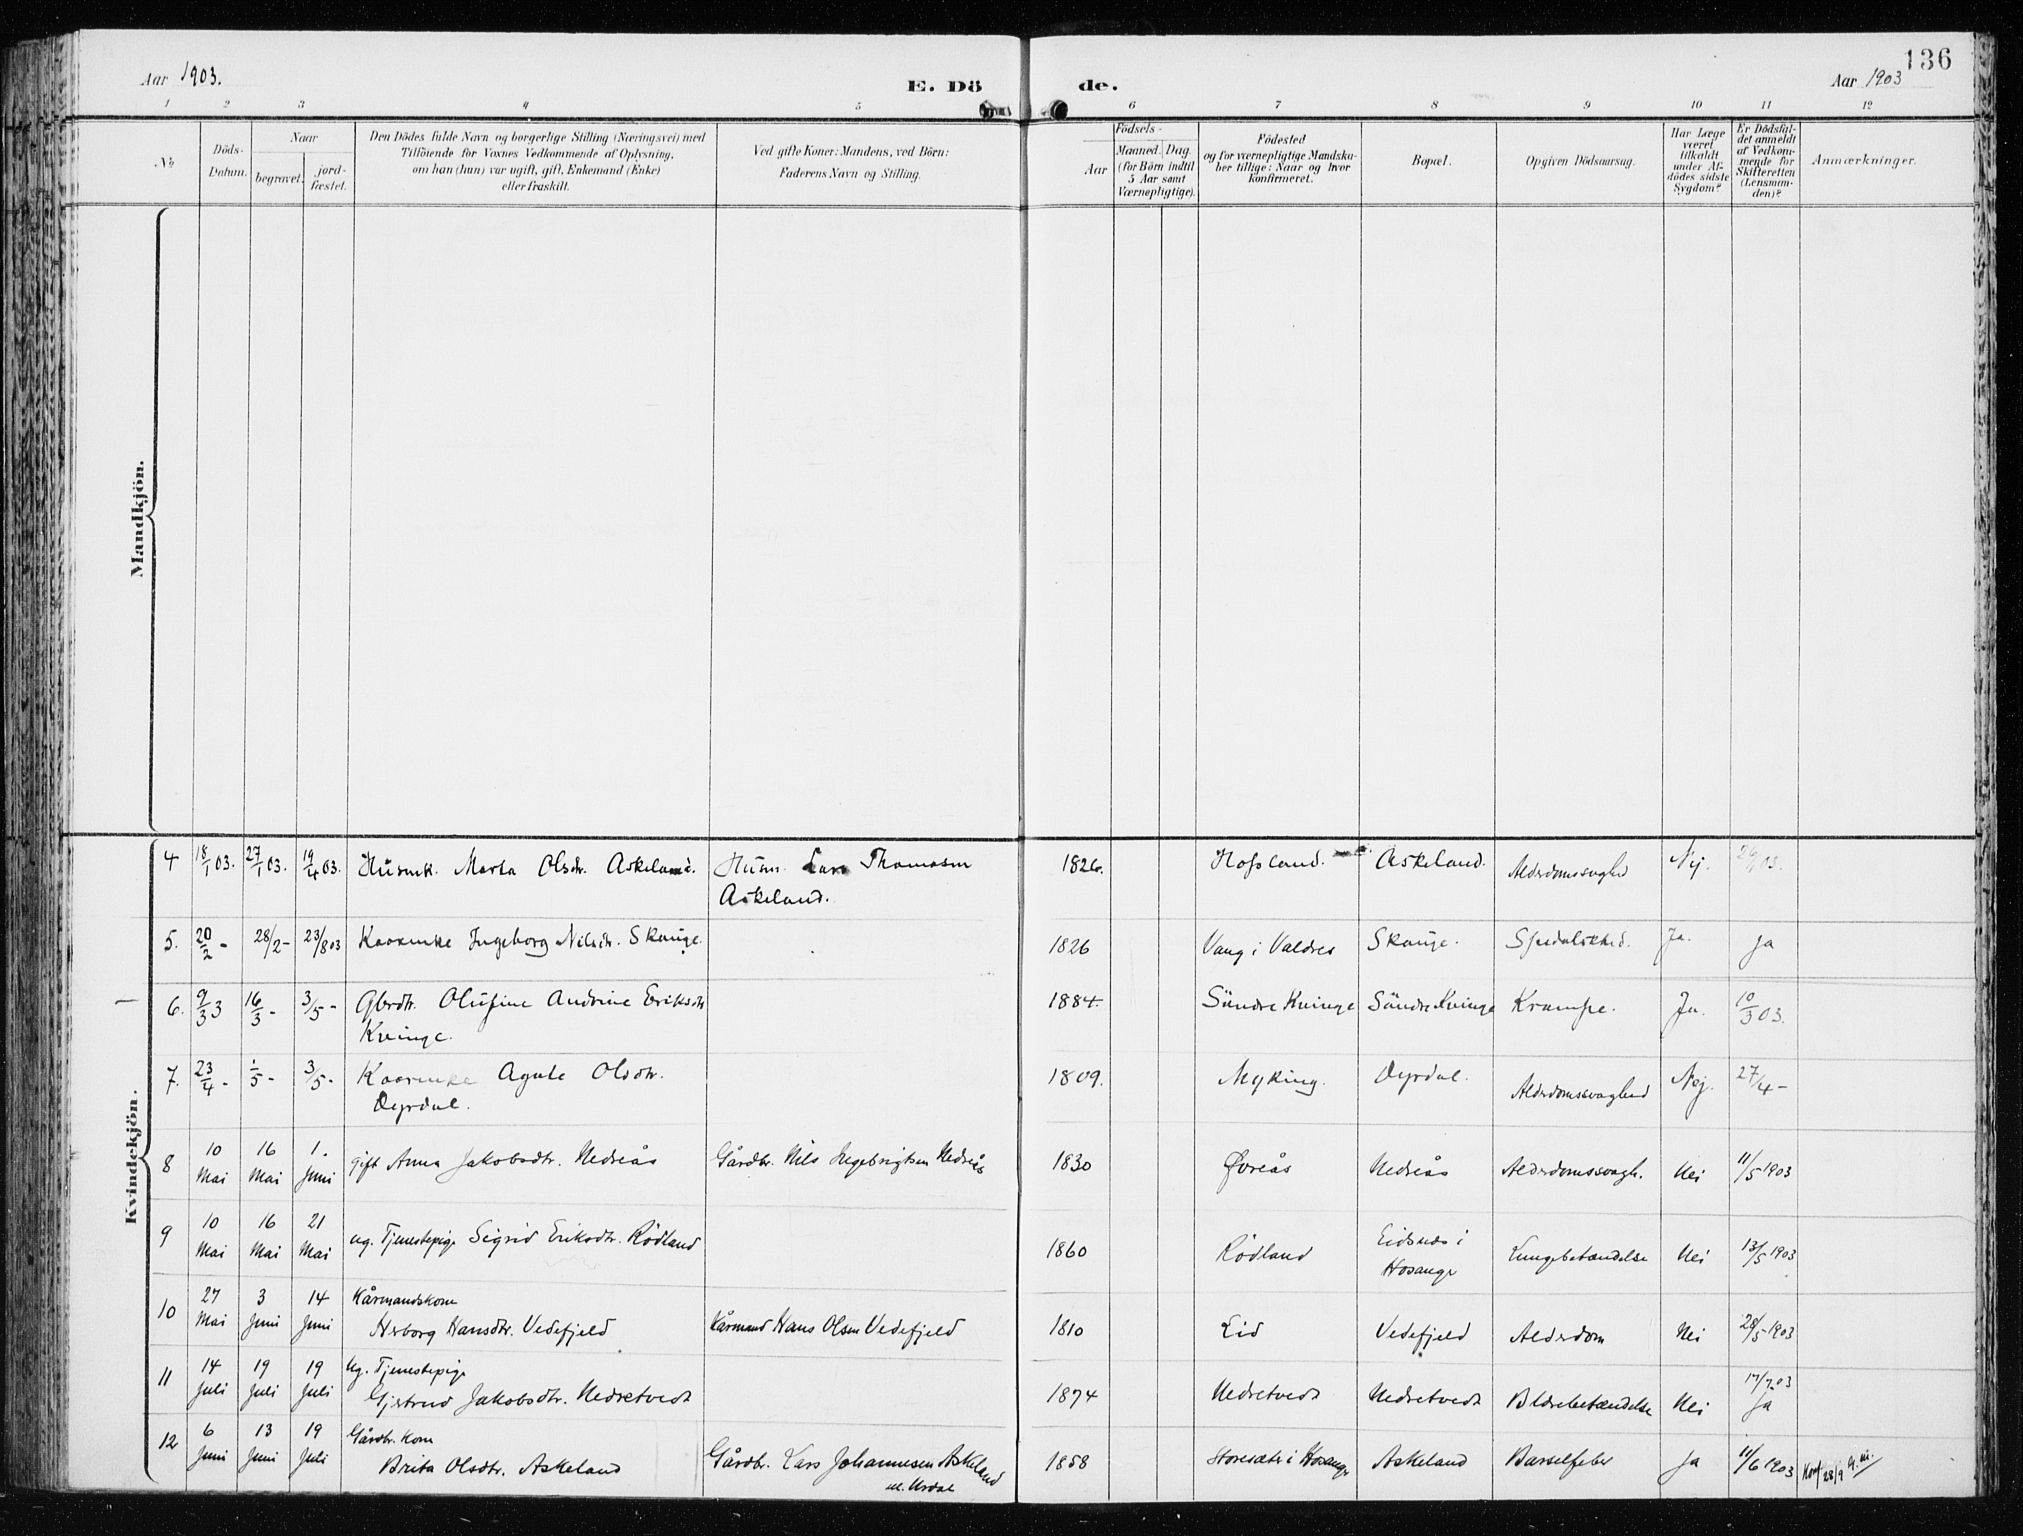 136
Aar 1903.
E. Dö
de.
Aar 1903
1 2 3 4 5 6 7 8 9 10 11 12
No
Döds-
Datum.
Naar
begravet.
jord-
fæstet.
Den Dödes fulde Navn og borgerlige Stilling (Næringsvei) med
Tilföiende for Voxnes Vedkommende af Oplysning,
om han (hun) var ugift, gift, Enkemand (Enke)
eller fraskilt.
Ved gifte Koner: Mandens, ved Börn:
Faderens Navn og Stilling.
Födsels-
Aar
Maaned. Dag
(for Börn indtil
5 Aar samt
Værnepligtige).
Födested
og for værnepligtige Mandska-
ber tillige: Naar og hvor
konfirmeret.
Bopæl.
Opgiven Dödsaarsag.
Har Læge
været
tilkaldt
under Af-
dödes sidste
Sygdom?
Er Dödsfal-
det anmeldt
af Vedkom-
mende for
Skifteretten
(Lensman-
den)?
Anmærkninger.
Mandkjön.
Kvindekjön.
4 18/1 03. 27/1 03. 19/4 03. Husmk. Marta Olsdtr. Askeland. Husm. Lars Thomasen 1826. Hofsland. Askeland. Alderdomssvaghed Nej. 03.
Askeland.
5. 20/2 - 28/2 - 23/8 03 Kaarenke Ingeborg Nilsdtr. Skauge. 1826 Vang i Valdres Skauge. Spedalskhed. Ja. Ja
6. 9/3 3 16/3 - 3/5 - Gbrdtr. Olufine Andrine Eriksdtr 1884. Söndre Kvinge Söndre Kvinge Krampe. Ja. 10/3 03.
Kvinge.
7. 23/4 - 1/5 - 3/5 - Kaarenke Agate Olsdtr. 1809. Myking. Dyrdal. Alderdomssvaghed Nej. 27/4 -
Dyrdal.
8 10 Mai 16 Mai 1. Juni gift Anna Jakobsdtr. Nedreås Gårdbr. Nils Ingebrigtsen Nedreås 1830 Øvreås Nedreås Alderdomssvagh. Nei 11/5 1903
9 10 Mai 16 Mai 21 Mai ug. Tjenestepige Sigrid Eriksdtr. Rödland 1860 Rödland Eidsnes i Hosanger Lungebetændelse Nei 13/5 1903
10 27 Mai 3 Juni 14 Juni Kårmandskone
Herborg Hansdtr. Vedefjeld Kårmand Hans Olsen Vedefjeld 1810 Eid Vedefjeld Alderdom Nei 28/5 1903
11 14 Juli 19 Juli 19 Juli Ug. Tjenestepige
Gjertrud Jakobsdtr. Nedretvedt 1874 Nedretvedt Nedretvedt Blærebetændelse Nei 17/7 03 Ja
12 6 Juni 13 Juni 19 Juli Gårdbr. kone
Brita Olsdtr. Askeland Gårdbr. Lars Johannesen Askeland 1858 Storesæter i Hosanger Askeland Barselfeber Ja 11/6 1903 28/9